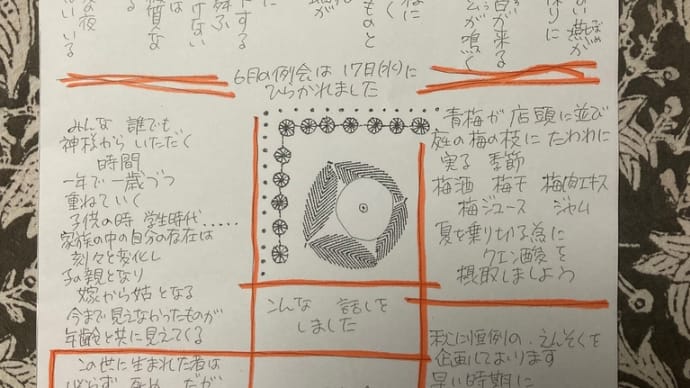 ない燕が
が来る
が鳴く
ものと
する
舞ふ
けない
は
質な
な夜
6月の例会は 17日(水)に
ひらかれました
青梅が 店頭に並び
庭の梅の枝に たわわに
実る 季節
梅酒 梅干 梅肉エキス
梅ジュース ジャム
夏を乗り切る為に
クエン酸を
摂取しましょう
みんな 誰でも
神様から いただく
時間
一年で 一歳づつ
重ねていく
子供の時 学生時代.....
家族の中の自分の存在は
刻々と変化し
子の親となり
嫁から姑となる
今まで見えなかったものが
年齢と共に見えてくる
こんな 話しを
しました
秋に恒例の えんそくを
企画しております
早い時期に
この世に生まれた者は